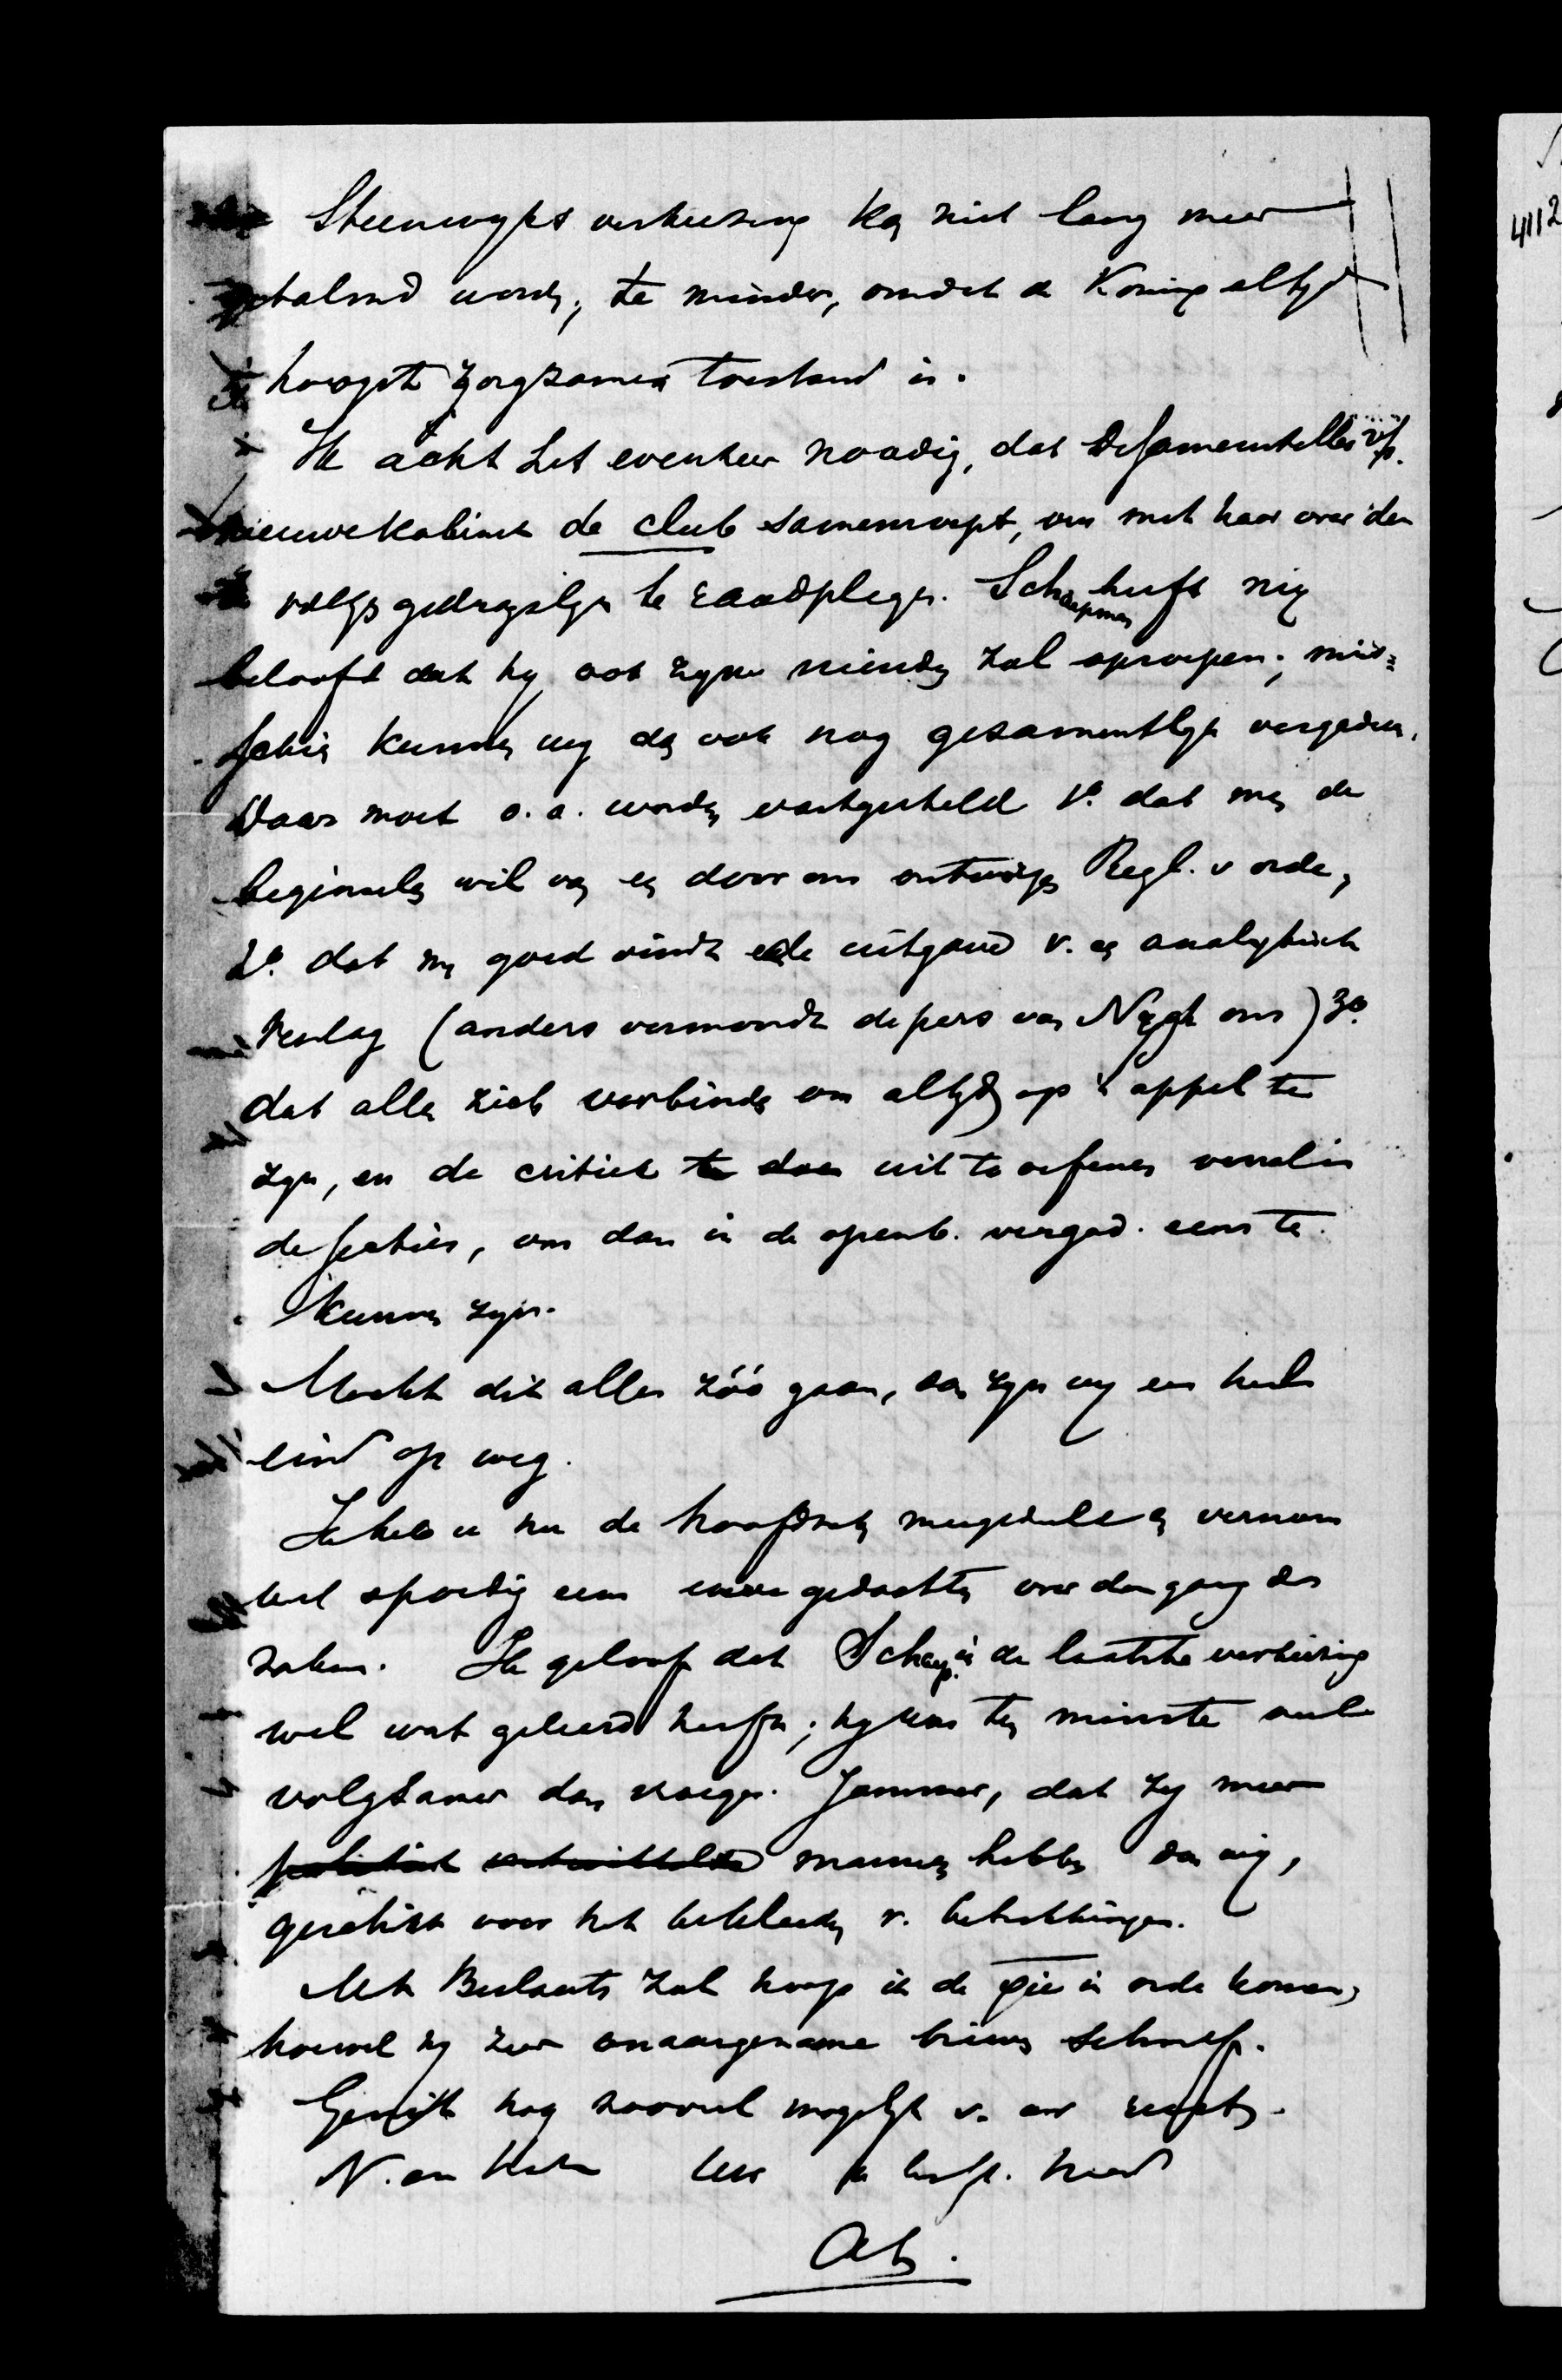 Steenwyks verkiezing kan niet lang meer
getalmd worden, te minder, omdat de Koning altyd
in hoogst zorgzamen toestand is.
Ik acht het evenzeer noodig, dat de samensteller v/h.
nieuwe Kabinet de club samenroept, om met haar over den
volgs gedragslyn te raadplegen. Schaepman heeft my
beloofd dat hy ook zyne vrienden zal oproepen; mis=
schien kunnen wy dan ook nog gezamentlyk vergaderen.
Daar moet o.a. worden vastgesteld 1o. dat men de
beginselen wil van en door ons ontworpen Regl. v orde,
2o. dat men goed vindt de uitgave v. een analytisch
Verslag (anders vermoordt de pers van Nygh ons) 3o.
dat allen zich verbinden om altyd op 't appel te
zyn, en de critiek te doen uit te oefenen vooral in
de sectien, om dan in de openb. vergad. eens te
kunnen zyn.
Mocht dit alles zóó gaan, dan zyn wy een heel
eind op weg.
Ik heb u nu de hoofdzaken meegedeeld en vernam
wel spoedig eens uwe gedachten over den gang der
zaken. Ik geloof dat Schaep. in de laatste verkiezing
wel wat geleerd heeft; hy was ten minste veel
volgzamer dan vroeger. Jammer, dat zy meer
politisch ontwikkelde mannen hebben dan wy,
geschikt voor het bekleeden v. betrekkingen.
Met Beelaerts zal hoop ik de qie in orde komen,
hoewel hy zeer onaangename brieven schreef.
Geniet nog zooveel mogelyk v. uw rust.
N. en Hater t.t. liefh. hoed